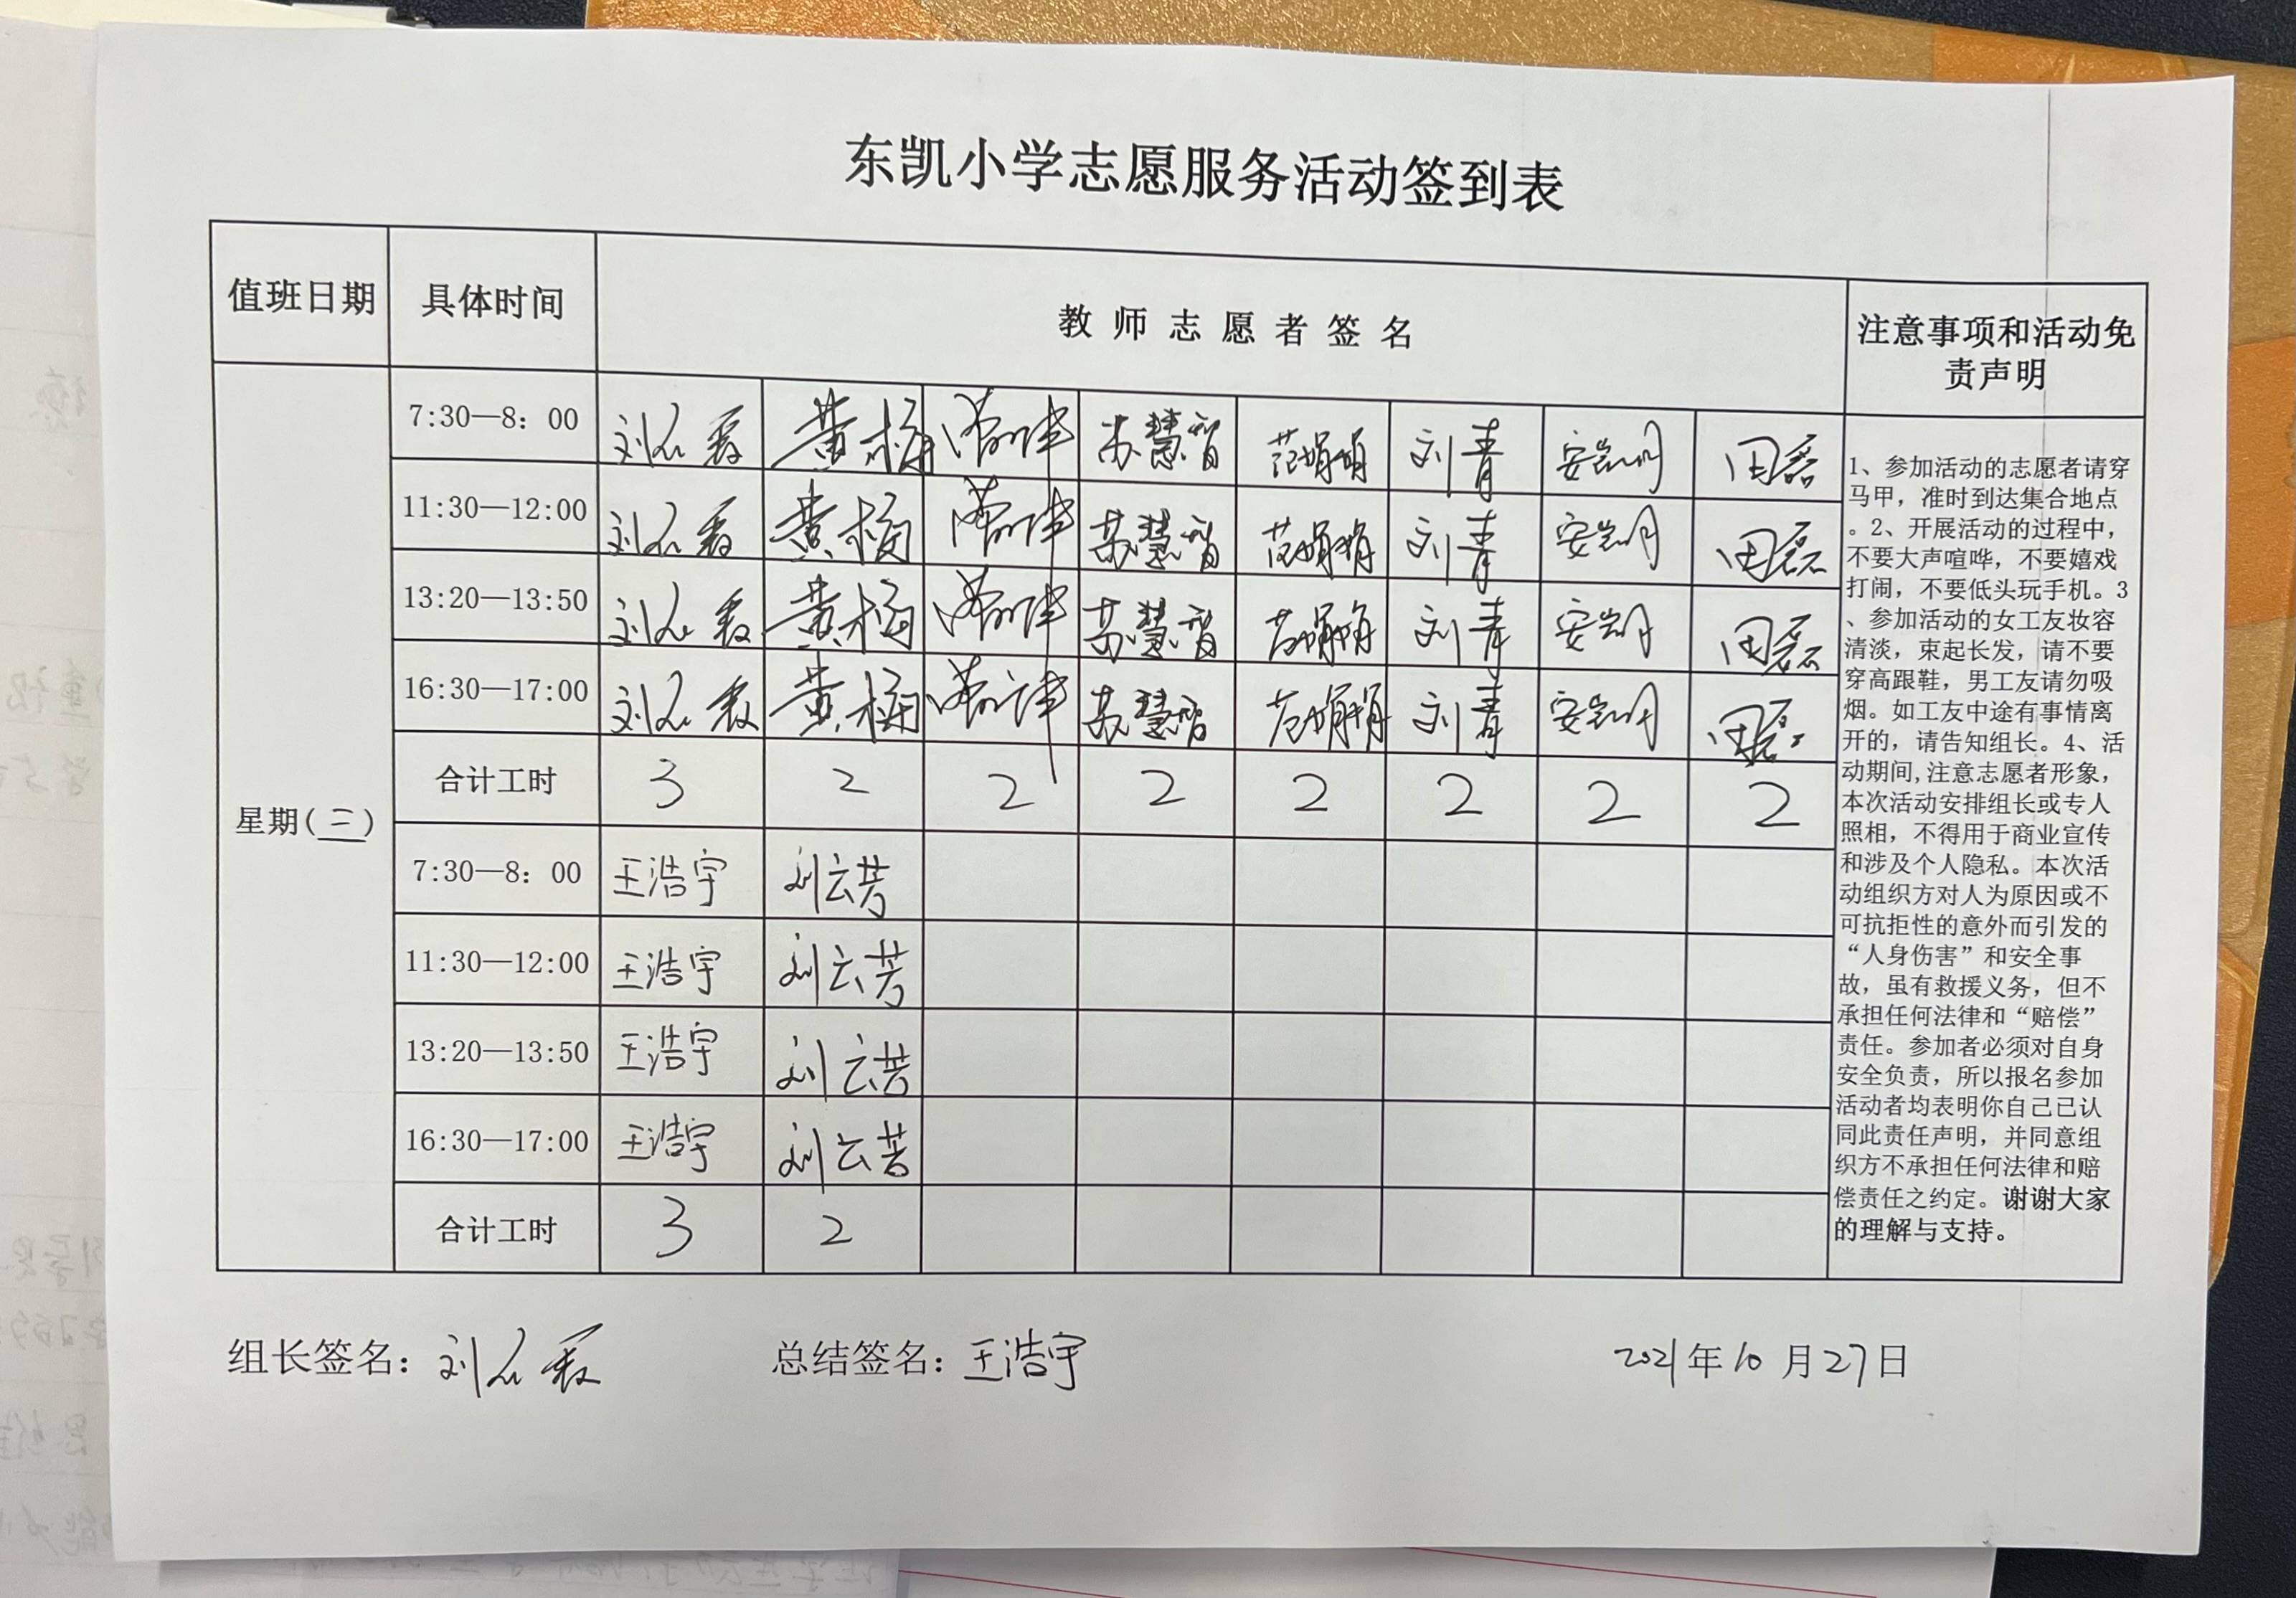 东凯小学志愿服务活动签到表
值班日期 具体时间 教师志愿者签名 注意事项和活动免责声明
星期(三)
7:30—8:00 黄梅 苏慧智 范娟娟 刘青 安凯明 田磊
11:30—12:00 黄梅 苏慧智 范娟娟 刘青 安凯明 田磊
13:20—13:50 黄梅 苏慧智 范娟娟 刘青 安凯明 田磊
16:30—17:00 黄梅 苏慧智 范娟娟 刘青 安凯明 田磊
合计工时 3 2 2 2 2 2 2 2
7:30—8:00 王浩宇 刘云芳
11:30—12:00 王浩宇 刘云芳
13:20—13:50 王浩宇 刘云芳
16:30—17:00 王浩宇 刘云芳
合计工时 3 2
1、参加活动的志愿者请穿
马甲，准时到达集合地点
。2、开展活动的过程中，
不要大声喧哗，不要嬉戏
打闹，不要低头玩手机。3
、参加活动的女工友妆容
清淡，束起长发，请不要
穿高跟鞋，男工友请勿吸
烟。如工友中途有事情离
开的，请告知组长。4、活
动期间,注意志愿者形象，
本次活动安排组长或专人
照相，不得用于商业宣传
和涉及个人隐私。本次活
动组织方对人为原因或不
可抗拒性的意外而引发的
“人身伤害”和安全事
故，虽有救援义务，但不
承担任何法律和“赔偿”
责任。参加者必须对自身
安全负责，所以报名参加
活动者均表明你自己已认
同此责任声明，并同意组
织方不承担任何法律和赔
偿责任之约定。谢谢大家
的理解与支持。
组长签名： 总结签名：王浩宇 2021年10月27日